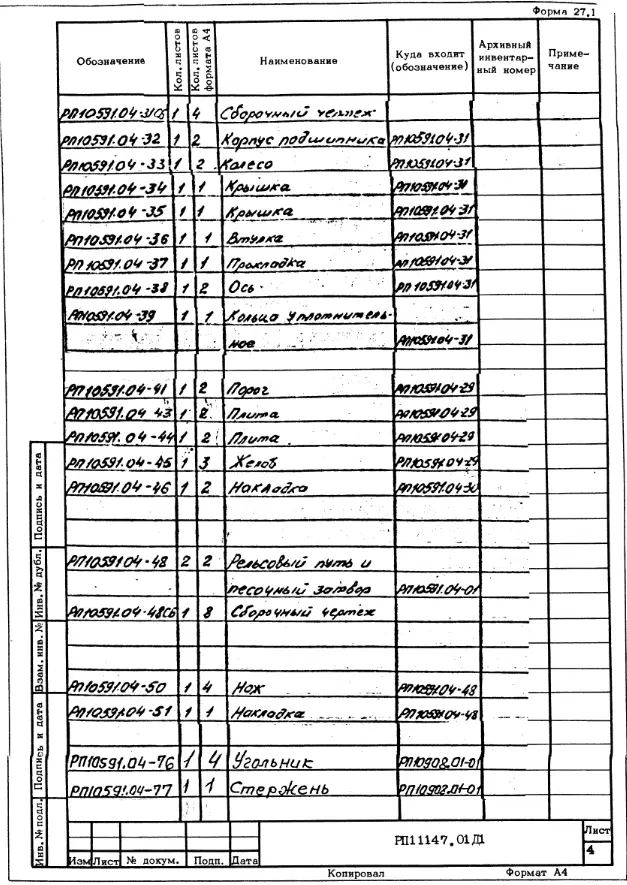 Форма 27.1
Обозначение Кол. листов Кол. листов формата А4 Наименование Куда входит (обозначение) Архивный инвентарный номер Примечание
РП10591.04-31СБ 1 4 Сборочный чертеж
РП10591.04-32 1 2 Корпус подшипника РП10591.04-31
РП10591.04-33 1 2 Колесо РП10591.04-31
РП10591.04-34 1 1 Крышка РП10591.04-31
РП10591.04-35 1 1 Крышка РП10591.04-31
РП10591.04-36 1 1 Втулка РП10591.04-31
РП10591.04-37 1 1 Прокладка РП10591.04-31
РП10591.04-38 1 2 Ось РП10591.04-31
РП10591.04-39 1 1 Кольцо уплотнитель-
ное РП10591.04-31
РП10591.04-41 1 2 Порог РП10591.04-29
РП10591.04-43 1 2 Плита РП10591.04-29
РП10591.04-44 1 2 Плита РП10591.04-29
РП10591.04-45 1 3 Желоб РП10591.04-29
РП10591.04-46 1 2 Накладка РП10591.04-30
РП10591.04-48 2 2 Рельсовый путь и
песочный затвор РП10591.04-01
РП10591.04-48СБ 1 8 Сборочный чертеж
РП10591.04-50 1 4 Нож РП10591.04-48
РП10591.04-51 1 1 Накладка РП10591.04-48
РП10591.04-76 1 4 Угольник РП10902.01-01
РП10591.04-77 1 1 Стержень РП10902.01-01
Инв. № подл. Подпись и дата Взам. инв. № Инв. № дубл. Подпись и дата
Изм Лист № докум. Подп. Дата
РП11147.01Д1
Лист
4
Копировал Формат А4